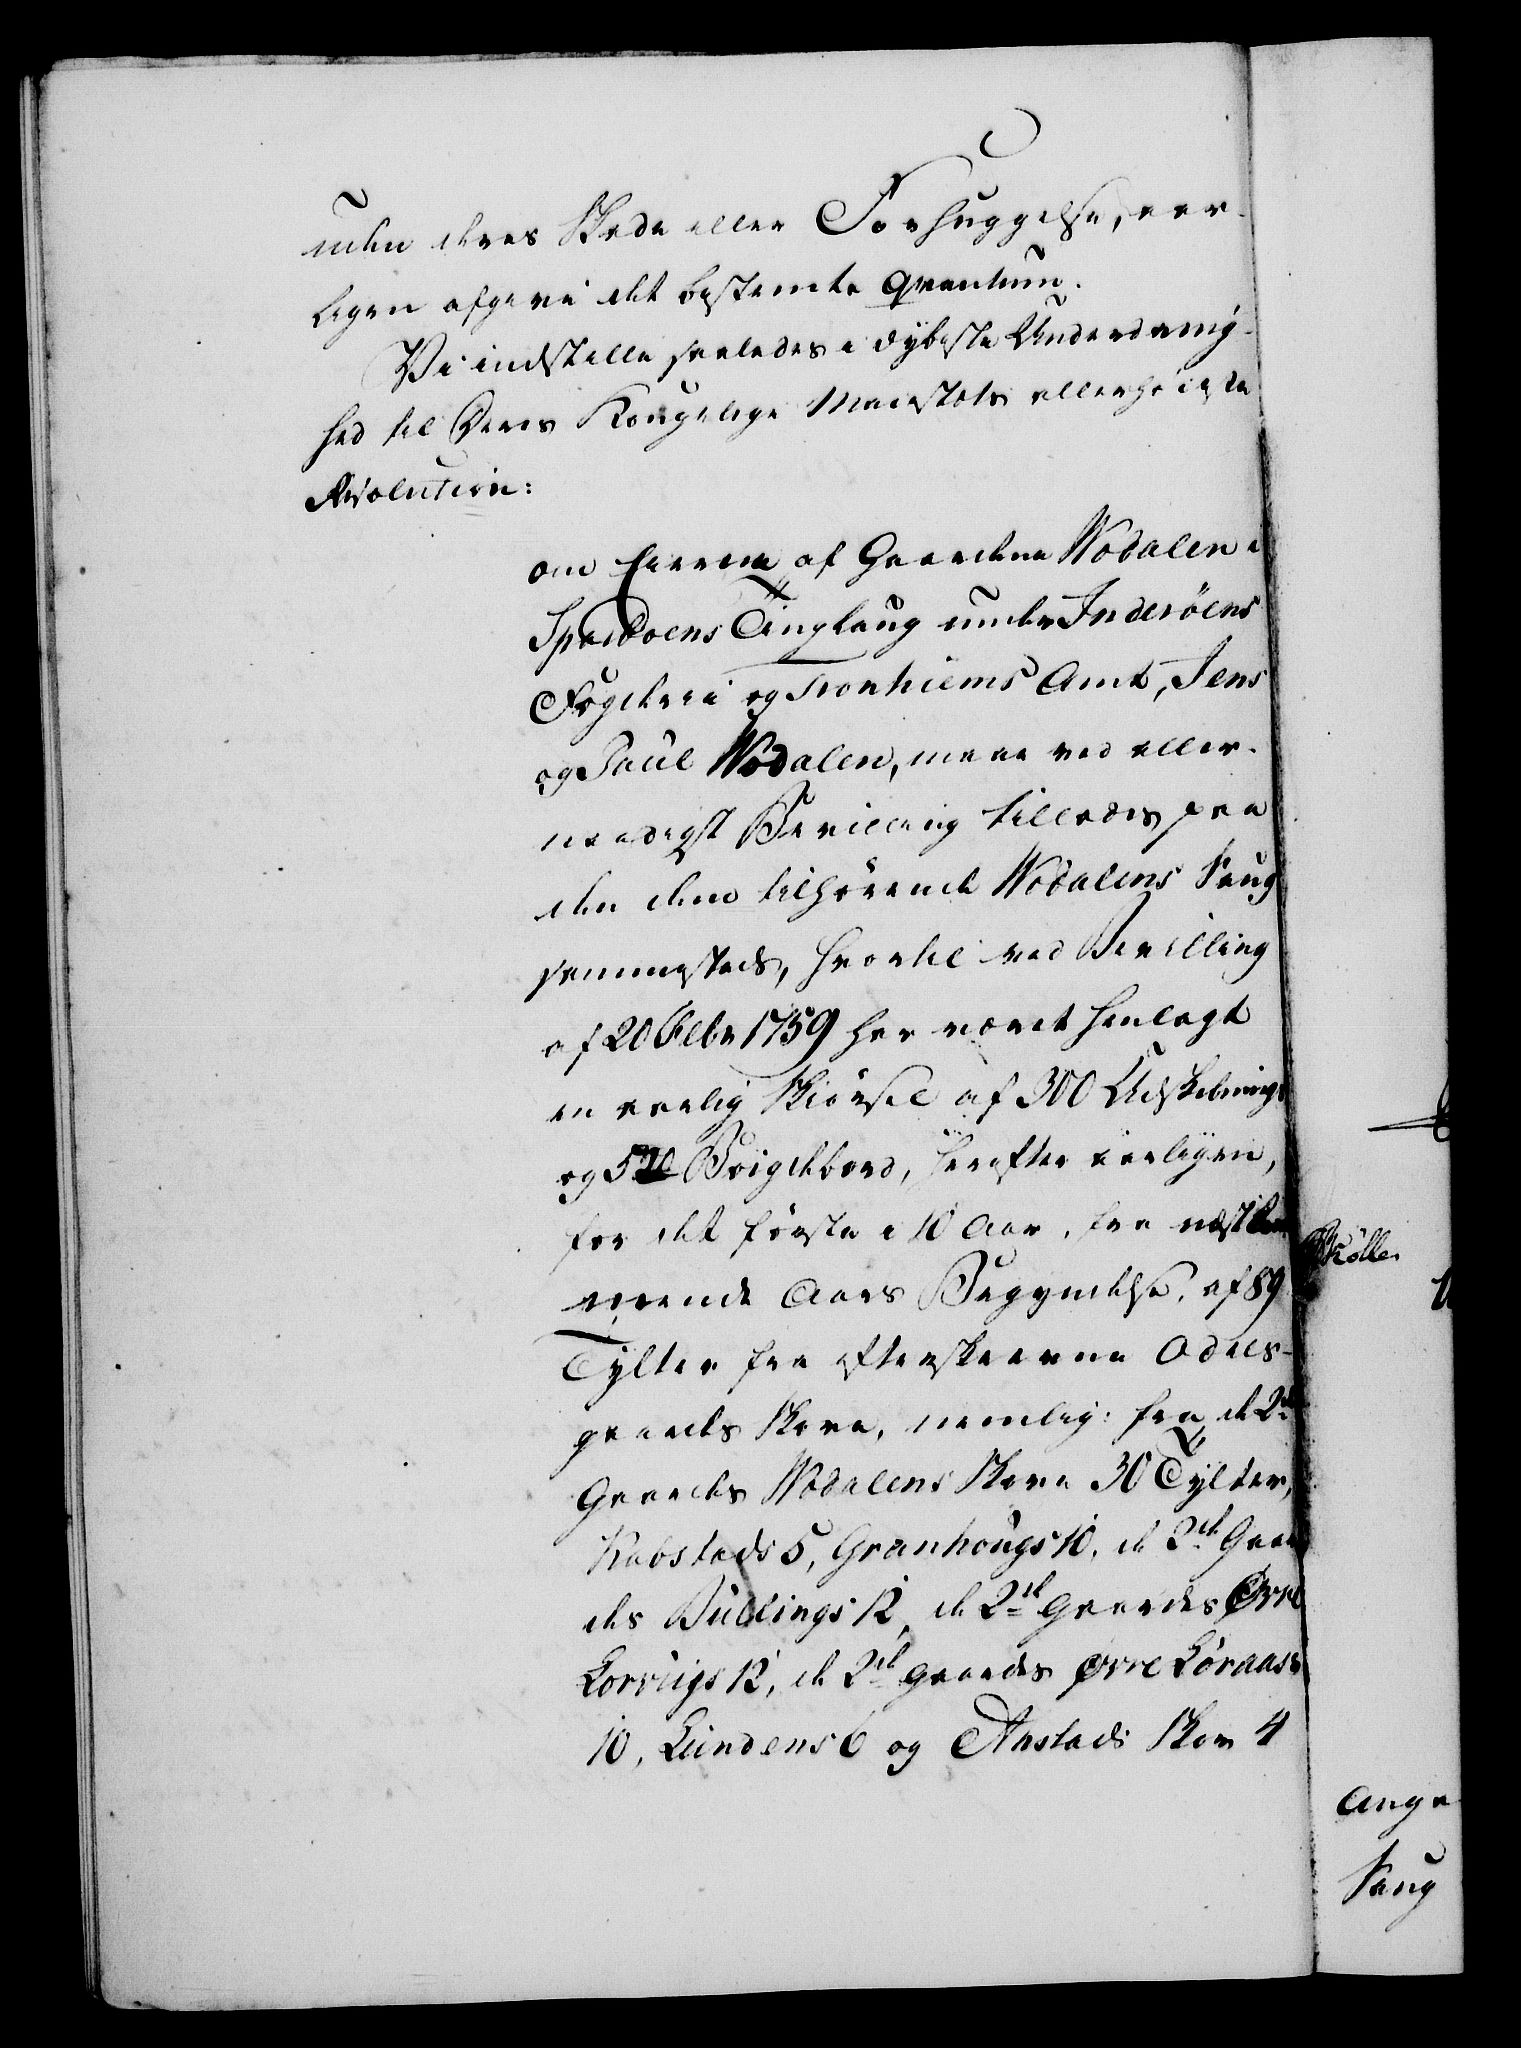 uden deres Skade eller Forhuggelse, aar-
ligen afgive det bestemte qvantum.
Vi indstille saaledes i dybeste Underdanig-
hed til Deres Kongelige Maiestæts allerhøieste
Resolution:
om Eierne af Gaardene Wodalen i
Sparboens Tinglaug under Inderöens
Fogderi og Tronhiems Amt, Jens
og Paul Wodalen, maae ved aller-
naadigst Bevilling tillades paa
den dem tilhörende Wodalens Saug
sammesteds, hvortil ved Bevilling
af 20 Febr 1759 har været henlagt
en aarlig Skiörsel af 300 Udskibnings
og 520 Bøigdebord, herefter aarligen,
for det förste i 10 Aar, fra næstkom
mende Aars Begyndelse, af 89
Tylter fra efterskrevne Odels-
gaards Skove, nemlig: fra de 2de
Gaards Wodalens Skove 30 Tylter,
Kabstads 5, Granhougs 10, de 2de Gaar
des Bullings 12, de 2de Gaardes Øvre
Lorvigs 12, de 2de Gaardes Øvre Löraas
10, Lundens 6 og Anstads Skov 4
Skölle
Ange
Saug